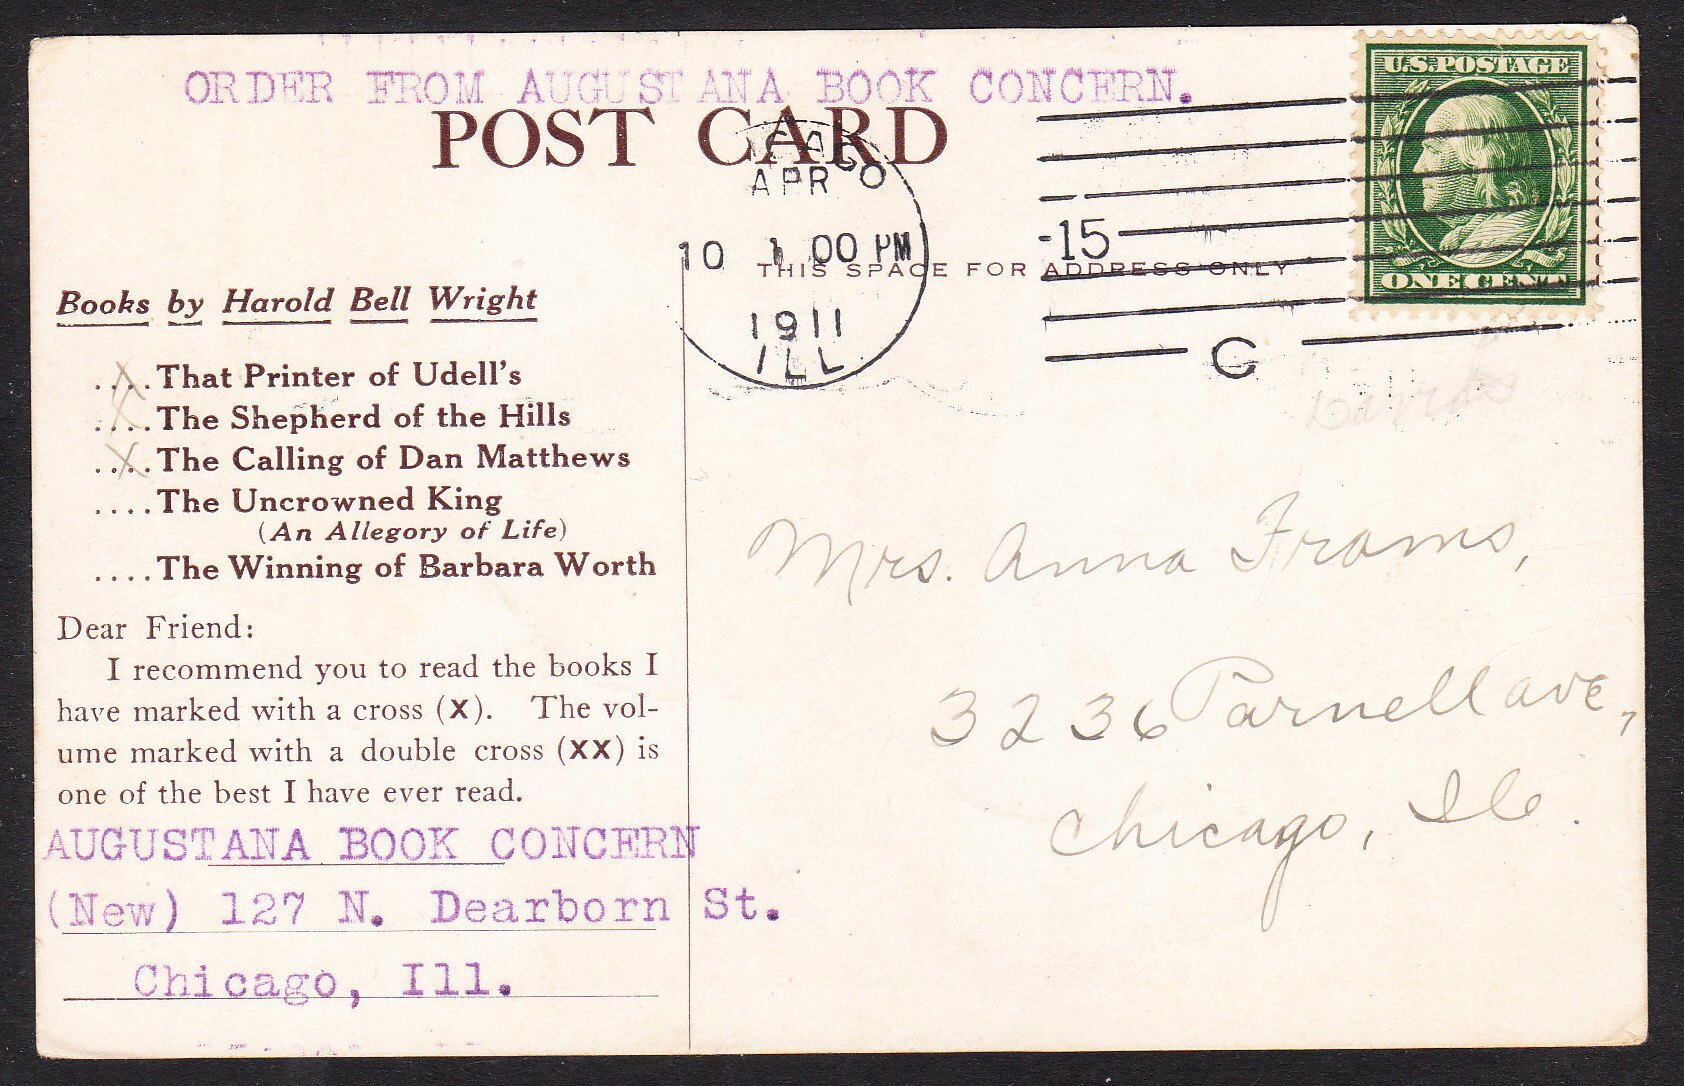 ORDER FROM AUGUSTANA BOOK CONCERN.
POST CARD
U.S. POSTAGE
ONE CENT
APR
10 1 00 PM
1911
ILL.
-15
C
THIS SPACE FOR ADDRESS ONLY
Books by Harold Bell Wright
....That Printer of Udell's
....The Shepherd of the Hills
....The Calling of Dan Matthews
....The Uncrowned King
(An Allegory of Life)
....The Winning of Barbara Worth
Dear Friend:
I recommend you to read the books I
have marked with a cross (X). The vol-
ume marked with a double cross (XX) is
one of the best I have ever read.
AUGUSTANA BOOK CONCERN
(New) 127 N. Dearborn St.
Chicago, Ill.
Mrs. Anna Frams,
3236 Parnell ave,
Chicago, Ill.